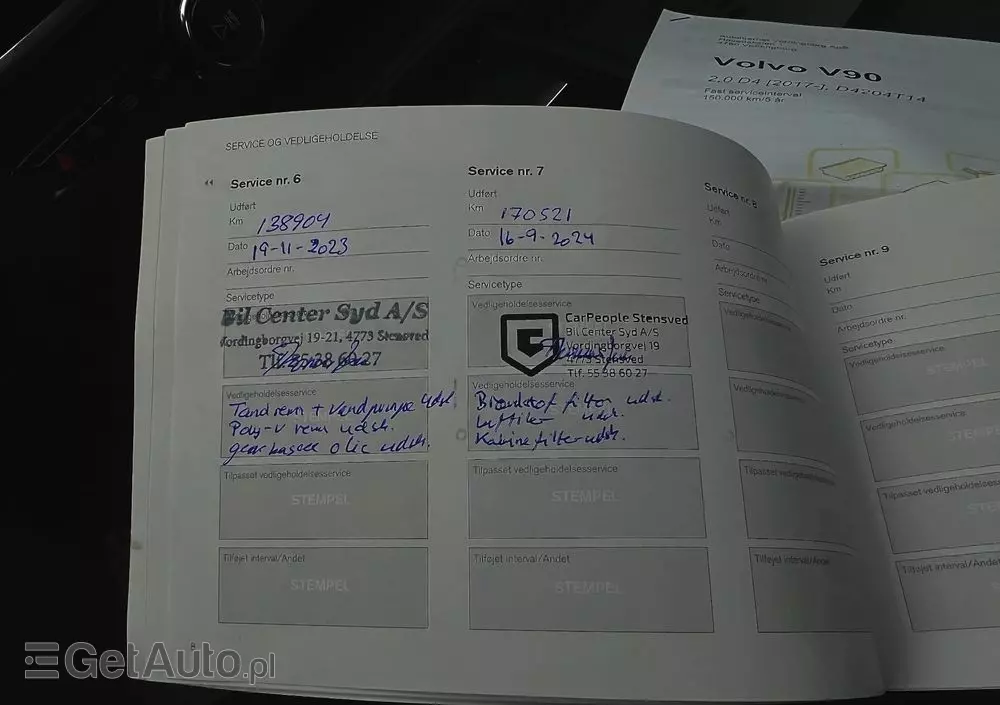 Volvo V90
2,0 D4 [2017-], D4204T14
Fast serviceinterval
150.000 km/5 år
SERVICE OG VEDLIGEHOLDELSE
Service nr. 6
Udført
Km 138904
Dato 19-11-2023
Arbejdsordre nr.
Servicetype
Bil Center Syd A/S
Vordingborgvej 19-21, 4773 Stensved
Tlf. 55 38 60 27
Vedligeholdelsesservice
Tandrem + Vandpumpe udsk.
Poly-V rem udsk.
gearkasse olie udsk.
Tilpasset vedligeholdelsesservice
STEMPEL
Tilføjet interval/Andet
STEMPEL
8
Service nr. 7
Udført
Km 170521
Dato 16-9-2024
Arbejdsordre nr.
Servicetype
Vedligeholdelsesservice
CarPeople Stensved
Bil Center Syd A/S
Vordingborgvej 19
4773 Stensved
Tlf. 55 38 60 27
Vedligeholdelsesservice
Brændstof filter udsk.
Luftfilter udsk.
Kabinefilter udsk.
Tilpasset vedligeholdelsesservice
STEMPEL
Tilføjet interval/Andet
STEMPEL
Service nr. 8
Udført
Km
Dato
Arbejdsordre nr.
Servicetype
Vedligeholdelsesservice
Vedligeholdelsesservice
Tilpasset vedligeholdelsesservice
Tilføjet interval/Andet
Service nr. 9
Udført
Km
Dato
Arbejdsordre nr.
Servicetype
Vedligeholdelsesservice
STEMPEL
Vedligeholdelsesservice
Tilpasset vedligeholdelsesservice
Tilføjet interval/Andet
GetAuto.pl